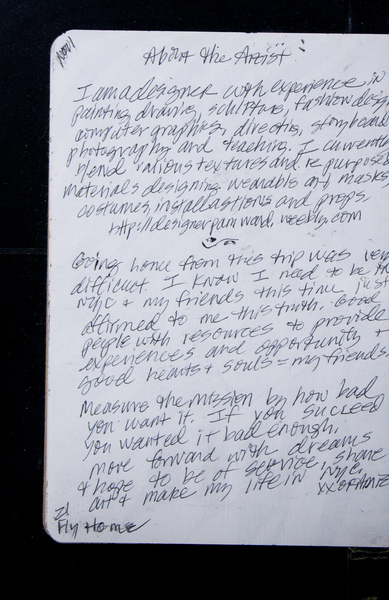 Nov 1
About the Artist:
I am a designer with experience in
painting, drawing, sculpture, fashion desig
computer graphics, directing, storyboard
photography and teaching. I currently
blend various textures and repurposed
materials designing wearable art, masks
costumes, installastions and props.
http://designerpamward.weebly.com
Going home from this trip was very
difficult. I know I need to be in
NYC & my friends this time just
affirmed to me this truth. Good
people with resources to provide
experiences and opportunity
good hearts + souls = my friends.
Measure the mission by how bad
you want it. If you succeed
you wanted it bad enough.
move forward with dreams
& hope to be of service, share
art & make my life in NYC.
Fly Home